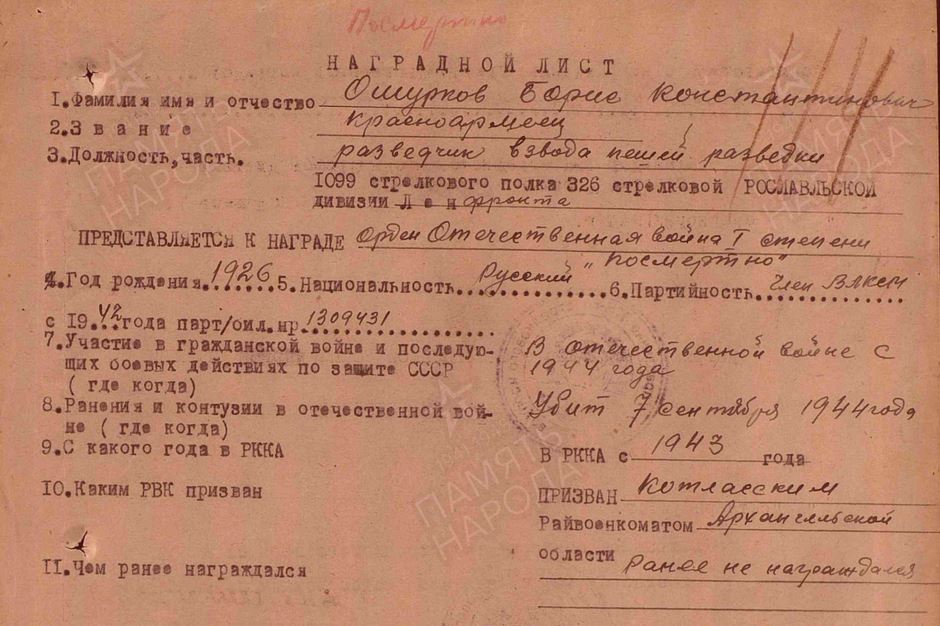 Посмертно
НАГРАДНОЙ ЛИСТ
1.Фамилия имя и отчество Ошурков Борис Константинович
2.Звание Красноармеец
3.Должность, часть. разведчик взвода пешей разведки
1099 стрелкового полка 326 стрелковой РОСЛАВЛЬСКОЙ
дивизии Лен фронта
ПРЕДСТАВЛЯЕТСЯ К НАГРАДЕ Орден Отечественная война I степени
"посмертно"
4.Год рождения...1926 5.Национальность Русский 6.Партийность Член ВЛКСМ
с 19.42 года парт/бил.нр 1309431
7.Участие в гражданской войне и последую- В отечественной войне с
щих боевых действиях по защите СССР 1944 года
( где когда)
8.Ранения и контузии в отечественной вой- Убит 7 сентября 1944 года
не ( где когда)
9.С какого года в РККА В РККА с 1943 года
10.Каким РВК призван ПРИЗВАН Котласским
Райвоенкоматом Архангельской
области
11.Чем ранее награждался Ранее не награждался
ПАМЯТЬ НАРОДА
ПАМЯТЬ НАРОДА
ПАМЯТЬ НАРОДА